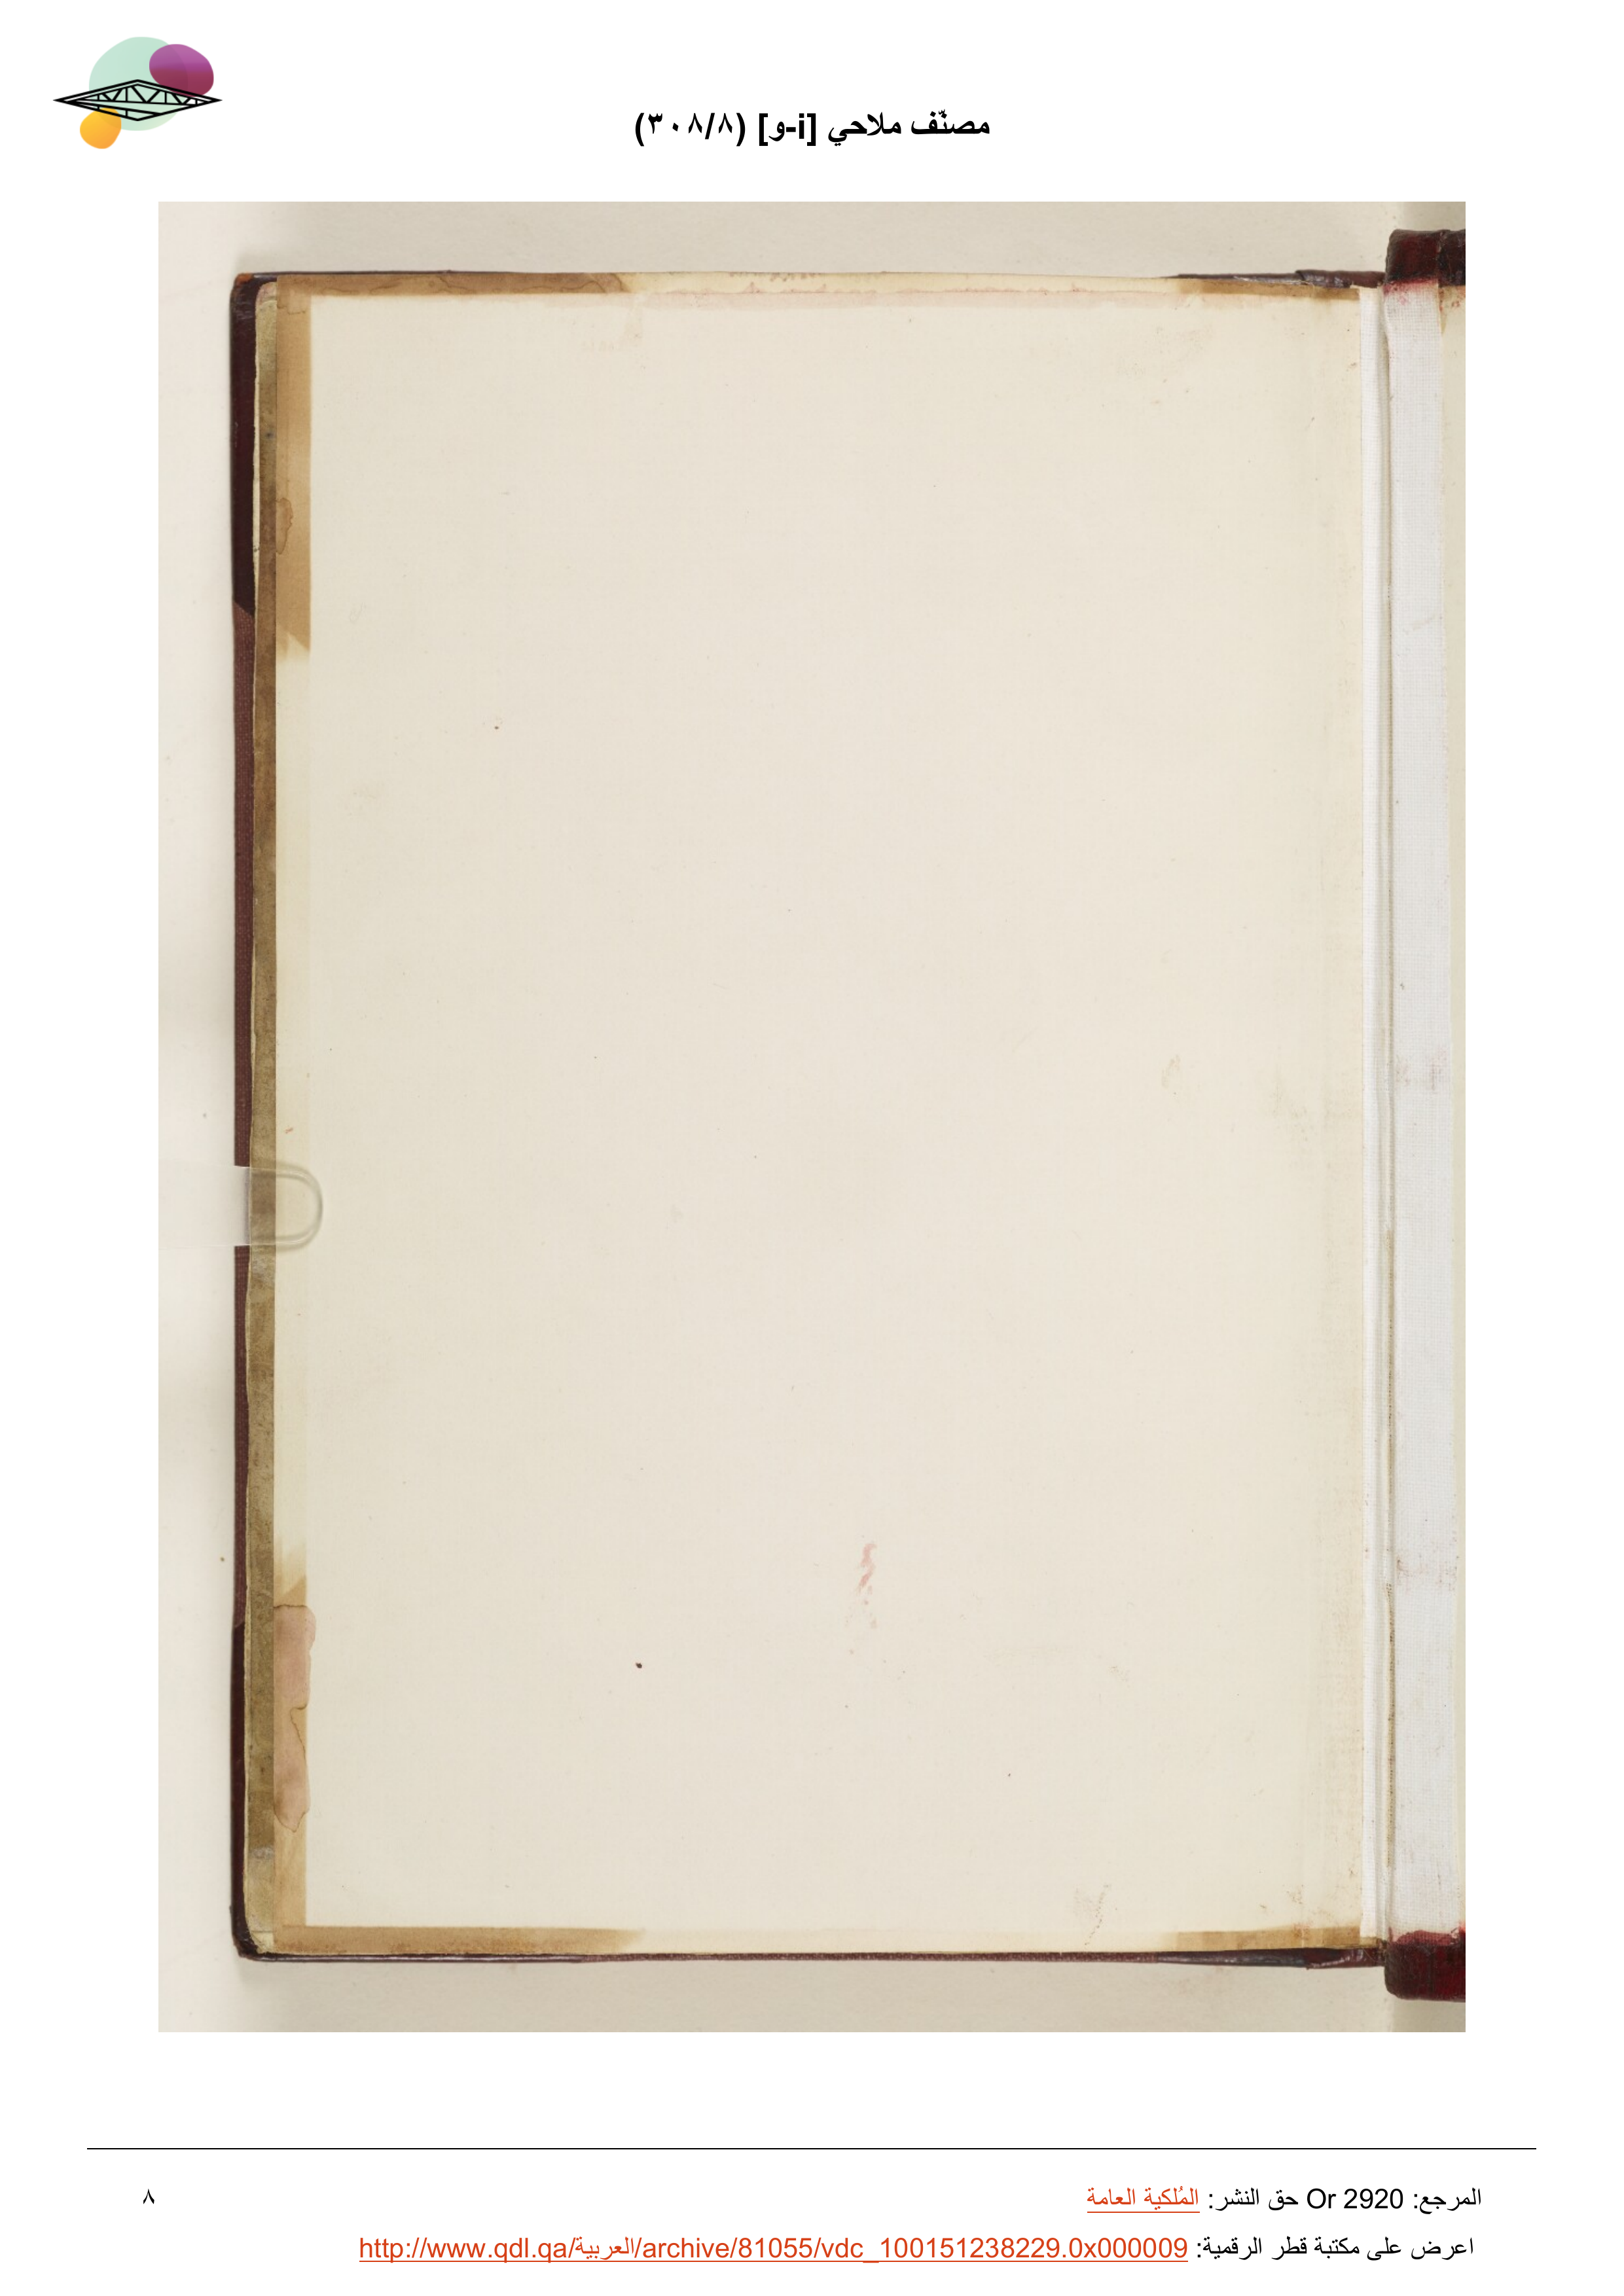 مصنّف ملاحي [i-و] (٣٠٨/٨)
المرجع: Or 2920 حق النشر: المُلكية العامة
٨
اعرض على مكتبة قطر الرقمية: http://www.qdl.qa/العربية/archive/81055/vdc_100151238229.0x000009